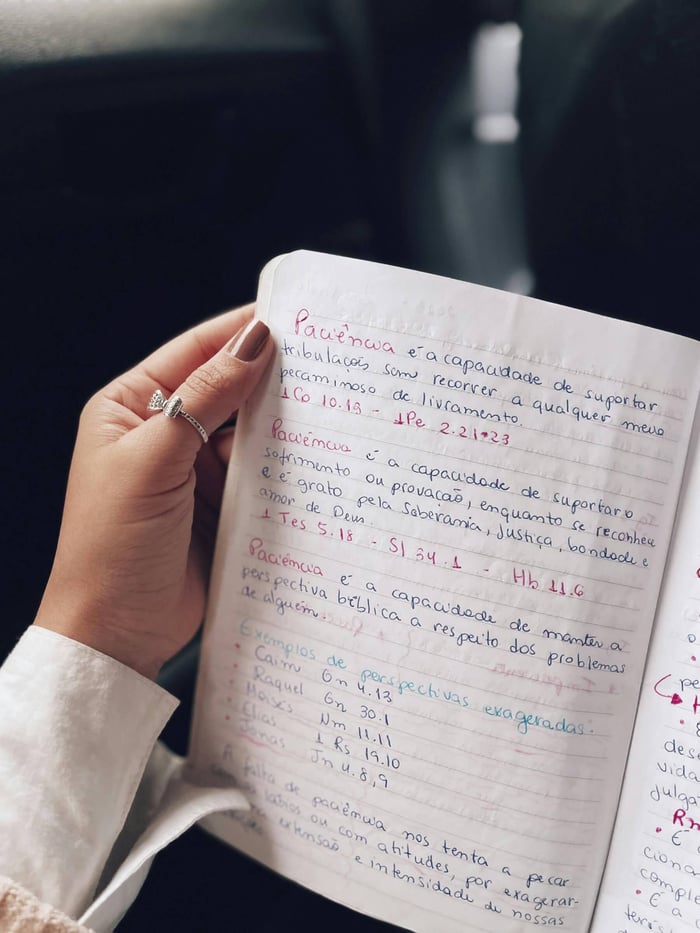 Paciência é a capacidade de suportar
tribulações sem recorrer a qualquer meio
pecaminoso de livramento.
1Co 10.13 - 1Pe 2.21-23
Paciência é a capacidade de suportar o
sofrimento ou provação, enquanto se reconhece
e é grato pela soberania, justiça, bondade e
amor de Deus.
1 Tes 5.18 - Sl 34.1 - Hb 11.6
Paciência é a capacidade de manter a
perspectiva bíblica a respeito dos problemas
de alguém.
Exemplos de perspectivas exageradas.
• Caim Gn 4.13
• Raquel Gn 30.1
• Moisés Nm 11.11
• Elias 1 Rs 19.10
• Jonas Jn 4.8,9
A falta de paciência nos tenta a pecar
com os lábios ou com atitudes, por exagerar-
extensão e intensidade de nossas
pe
dese
vida
julga
Rm
• É
ciona
comple
• É a